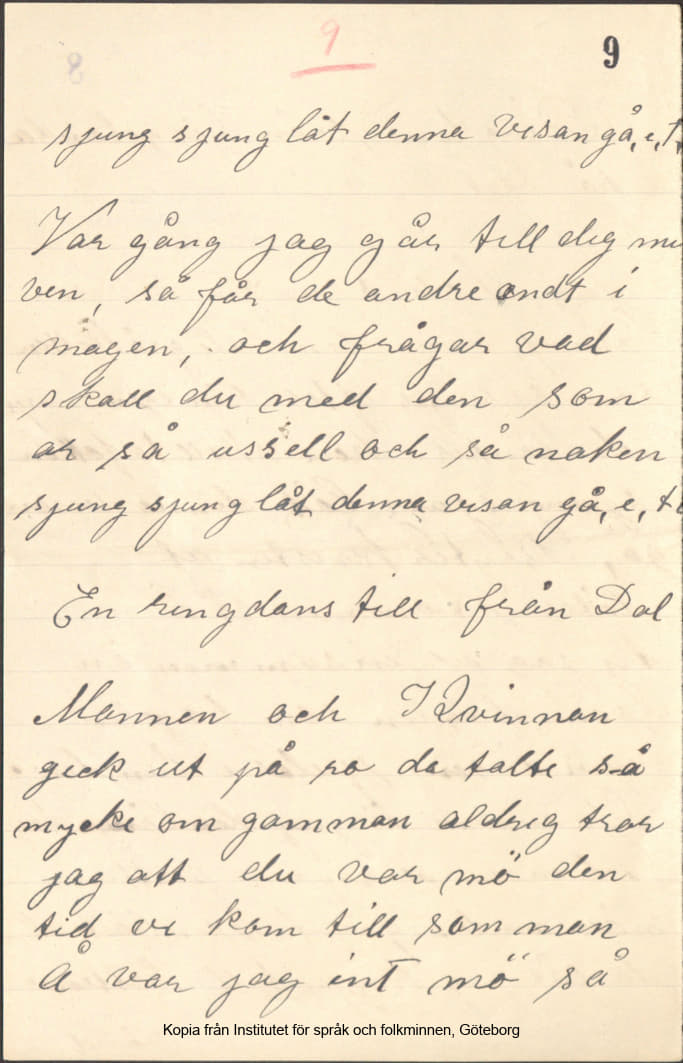 9
9
8
sjung sjung låt denna visan gå, e, t,
Var gång jag går till dig
ven, så får de andre ondt i
magen, och frågar vad
skall du med den som
ar så ussell och så naken
sjung sjung låt denna visan gå, e, t
En ringdans till från Dal
Mannen och Kvinnan
geck ut på ro da talte så
mycke om gamman aldrig tror
jag att du var mö den
tid vi kom till samman
Å var jag int mö så
Kopia från Institutet för språk och folkminnen, Göteborg